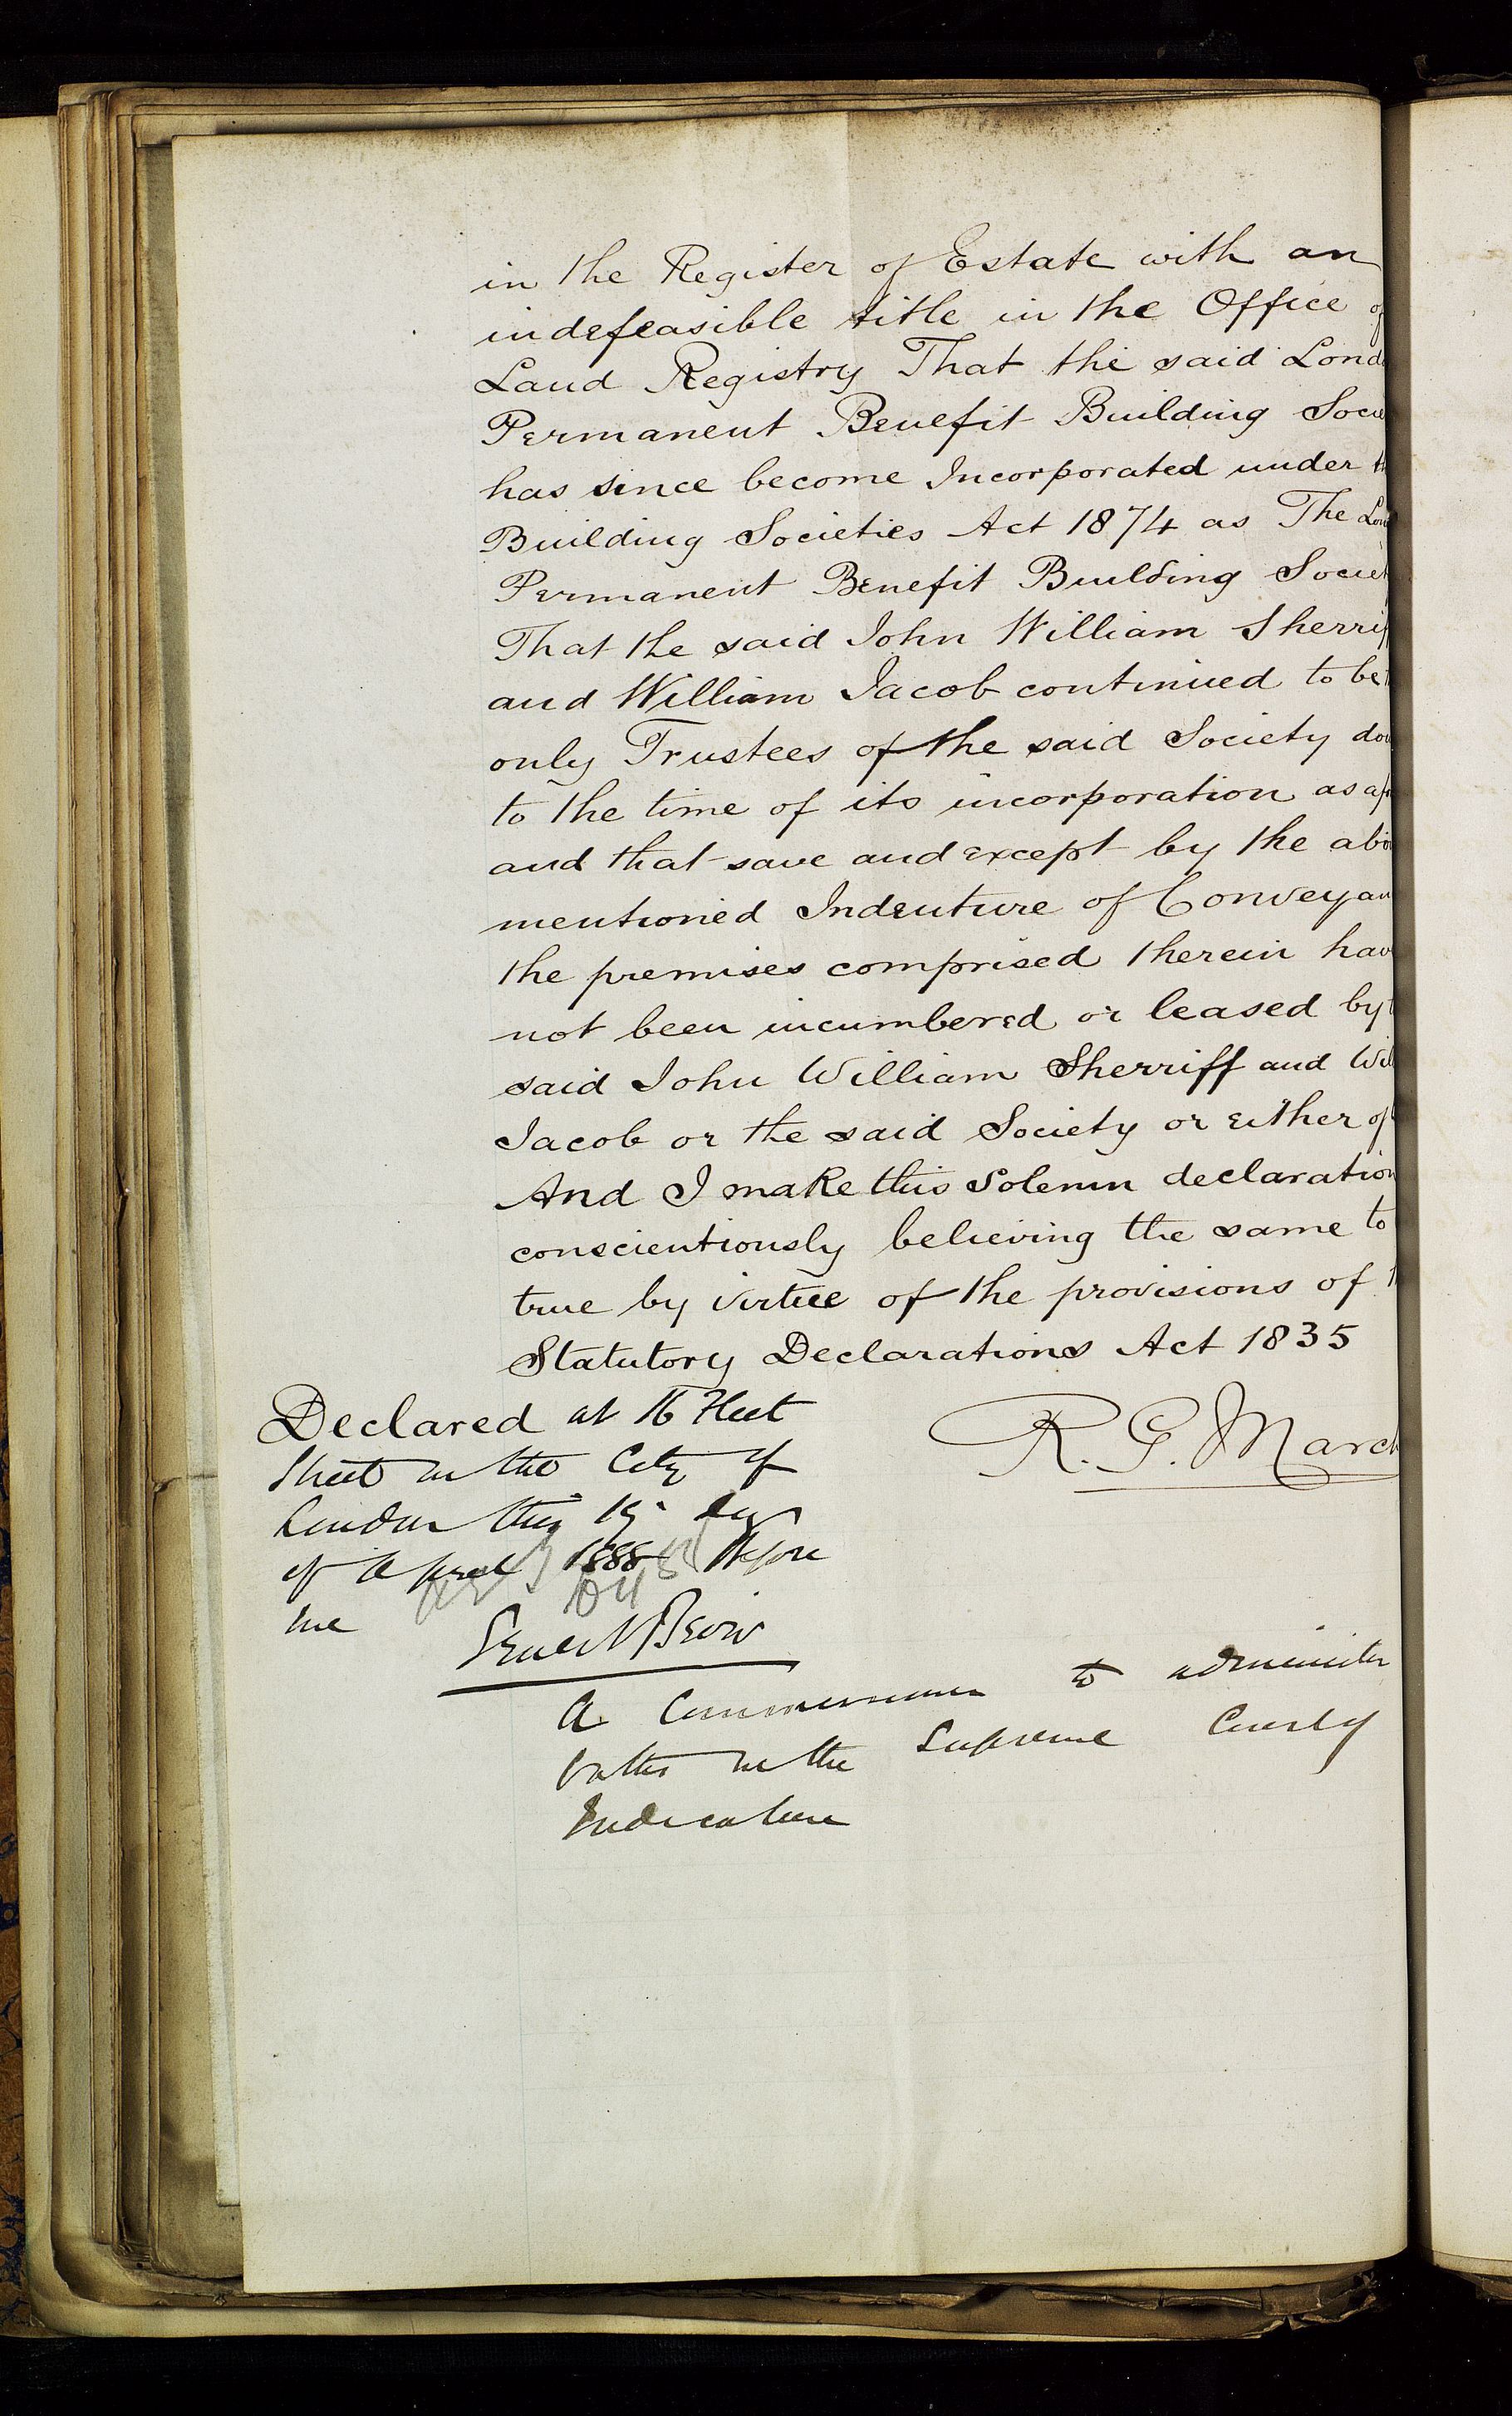 in the Register of Estate with an
indefeasible title in the Office of
Land Registry That the said Lond
Permanent Benefit Building Socie
has since become Incorporated under th
Building Societies Act 1874 as The Lon
Permanent Benefit Building Societ
That the said John William Sherrif
and William Jacob continued to be
only Trustees of the said Society dow
to the time of its incorporation as af
and that save and except by the abo
mentioned Indenture of Conveyan
the premises comprised therein hav
not been incumbered or leased by
said John William Sherriff and Wil
Jacob or the said Society or either of
And I make this solemn declaration
conscientiously believing the same to
true by virtue of the provisions of
Statutory Declarations Act 1835
Declared at 16 Fleet
Street in the City of
London this 19 day
of April 1888 Before
me
R. G. March
A Commissioner to administer
Oaths in the Supreme Court of
Judicature